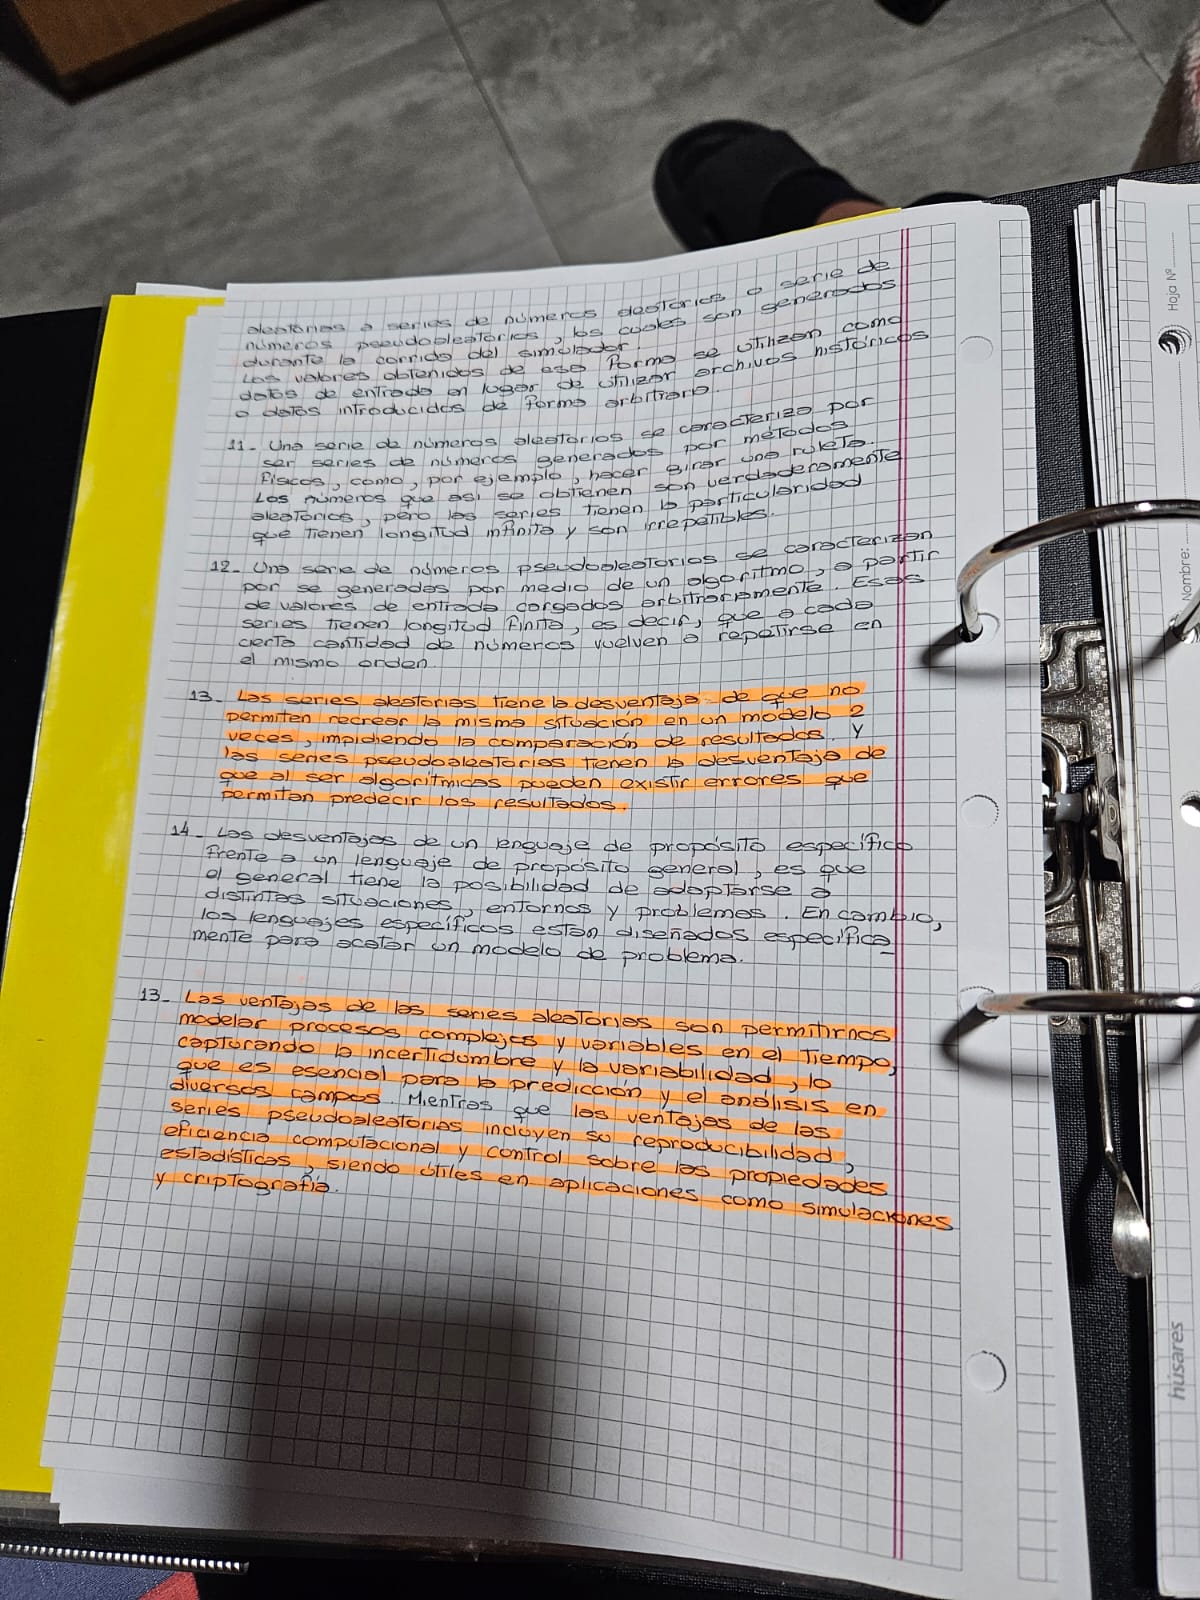 aleatorias o series de números aleatorios o serie de
números pseudoaleatorios, los cuales son generados
durante la corrida del simulador.
Los valores obtenidos de esa forma se utilizan como
datos de entrada en lugar de utilizar archivos históricos
o datos introducidos de forma arbitraria.
11- Una serie de números aleatorios se caracteriza por
ser series de números generados por métodos
físcos, como, por ejemplo, hacer girar una ruleta.
Los números que así se obtienen son verdaderamente
aleatorios, pero las series tienen la particularidad
que tienen longitud infinita y son irrepetibles.
12- Una serie de números pseudoaleatorios se caracterizan
por se generadas por medio de un algoritmo, a partir
de valores de entrada cargados arbitrariamente. Esas
series tienen longitud finita, es decir, que a cada
cierta cantidad de números vuelven a repetirse en
el mismo orden.
13- Las series aleatorias tiene la desventaja de que no
permiten recrear la misma situación en un modelo 2
veces, impidiendo la comparación de resultados. Y
las series pseudoaleatorias tienen la desventaja de
que al ser algorítmicas pueden existir errores que
permitan predecir los resultados.
14- Las desventajas de un lenguaje de propósito específico
frente a un lenguaje de propósito general, es que
el general tiene la posibilidad de adaptarse a
distintas situaciones, entornos y problemas. En cambio,
los lenguajes específicos están diseñados específica_
mente para acatar un modelo de problema.
13- Las ventajas de las series aleatorias son permitirnos
modelar procesos complejos y variables en el tiempo,
capturando la incertidumbre y la variabilidad, lo
que es esencial para la predicción y el análisis en
diversos campos. Mientras que las ventajas de las
series pseudoaleatorias incluyen su reproducibilidad,
eficiencia computacional y control sobre las propiedades
estadísticas, siendo útiles en aplicaciones como simulaciones
y criptografía.
Hoja Nº
Nombre:
húsares